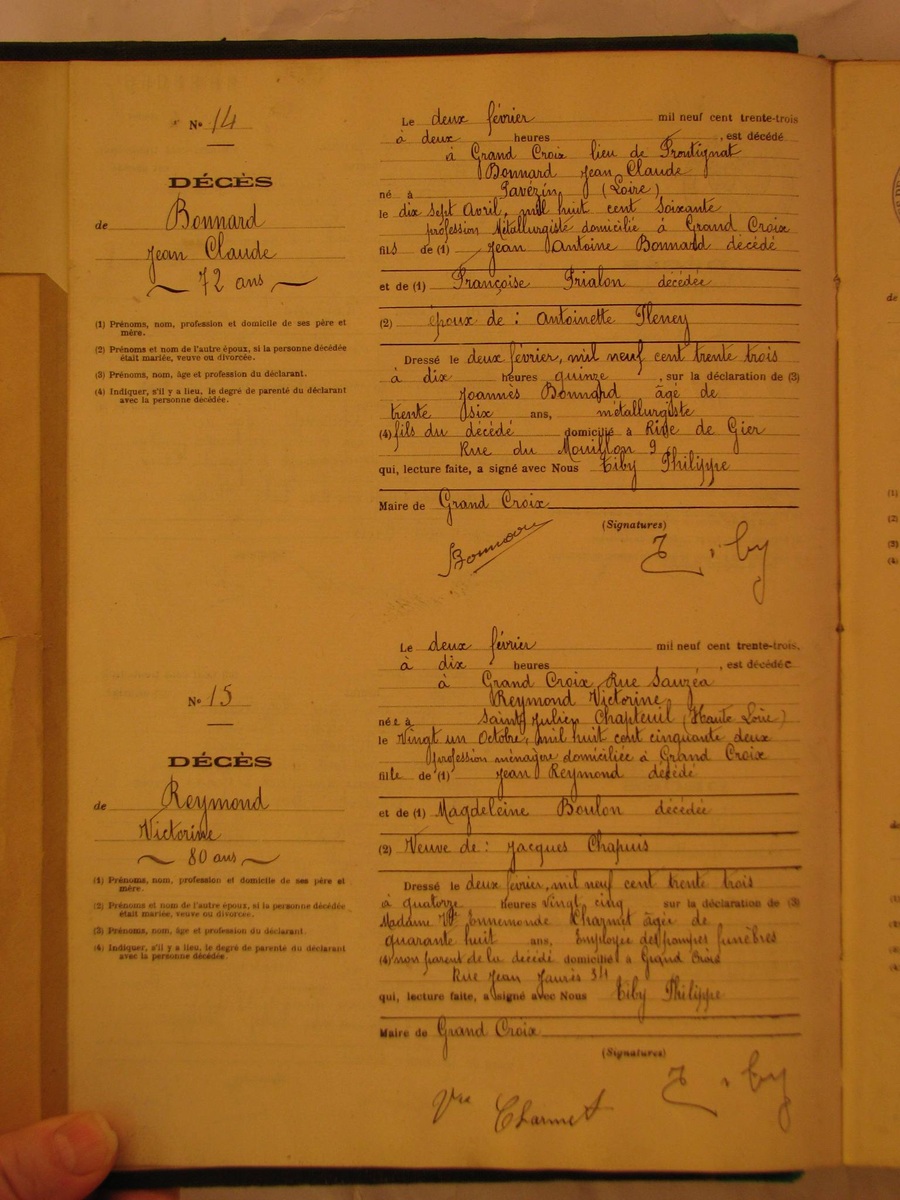 N° 14
DÉCÈS
de Bonnard
Jean Claude
72 ans
(1) Prénoms, nom, profession et domicile de ses père et
mère.
(2) Prénoms et nom de l'autre époux, si la personne décédée
était mariée, veuve ou divorcée.
(3) Prénoms, nom, âge et profession du déclarant.
(4) Indiquer, s'il y a lieu, le degré de parenté du déclarant
avec la personne décédée.
Le deux février mil neuf cent trente-trois
à deux heures , est décédé
à Grand Croix lieu de
Bonnard Jean Claude
né à Pavezin (Loire)
le dix sept Avril, mil huit cent soixante
profession Métallurgiste domicilié à Grand Croix
fils de (1) Jean Antoine Bonnard décédé
et de (1) Françoise Frialon décédée
(2) époux de : Antoinette Pleney
Dressé le deux février, mil neuf cent trente trois
à dix heures quinze , sur la déclaration de (3)
Joannès Bonnard âgé de
trente six ans, métallurgiste
(4) fils du décédé domicilié à Rive de Gier
Rue du Mouillon 9
qui, lecture faite, a signé avec Nous Tiby Philippe
Maire de Grand Croix
(Signatures)
Bonnard
Tiby
N° 15
DÉCÈS
de Reymond
Victorine
80 ans
(1) Prénoms, nom, profession et domicile de ses père et
mère.
(2) Prénoms et nom de l'autre époux, si la personne décédée
était mariée, veuve ou divorcée.
(3) Prénoms, nom, âge et profession du déclarant.
(4) Indiquer, s'il y a lieu, le degré de parenté du déclarant
avec la personne décédée.
Le deux février mil neuf cent trente-trois.
à dix heures , est décédée
à Grand Croix Rue Sauzéa
Reymond Victorine
née à Saint Julien Chapteuil (Haute Loire)
le Vingt un Octobre, mil huit cent cinquante deux
profession ménagère domiciliée à Grand Croix
fille de (1) Jean Reymond décédé
et de (1) Magdeleine Boulon décédée
(2) Veuve de : Jacques Chapuis
Dressé le deux février, mil neuf cent trente trois
à quatorze heures Vingt cinq sur la déclaration de (3)
Madame Vve Ennemonde Charmet âgée de
quarante huit ans, Employée des pompes funèbres
(4) non parent de la décédé domicilié à Grand Croix
Rue Jean Jaurès 34
qui, lecture faite, a signé avec Nous Tiby Philippe
Maire de Grand Croix
(Signatures)
Vve Charmet
Tiby